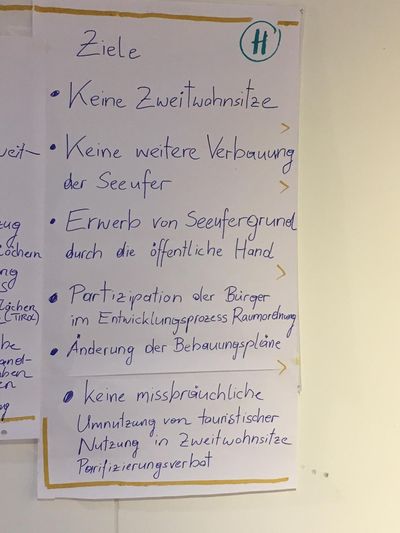 Ziele
H
• Keine Zweitwohnsitze
>
• Keine weitere Verbauung
der Seeufer
>
• Erwerb von Seeufergrund
durch die öffentliche Hand
>
• Partizipation der Bürger
im Entwicklungsprozess Raumordnung
• Änderung der Bebauungspläne
>
• Keine missbräuchliche
Umnutzung von touristischer
Nutzung in Zweitwohnsitze
Parifizierungsverbot